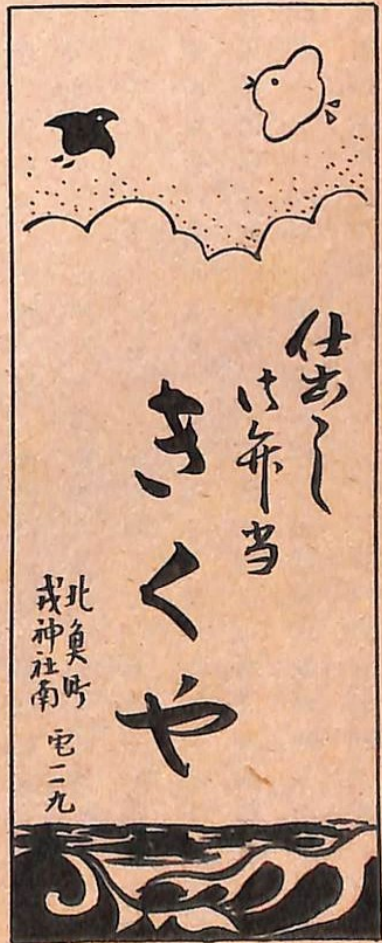 仕出し
御弁当
きくや
北魚町
戎神社南
電二九